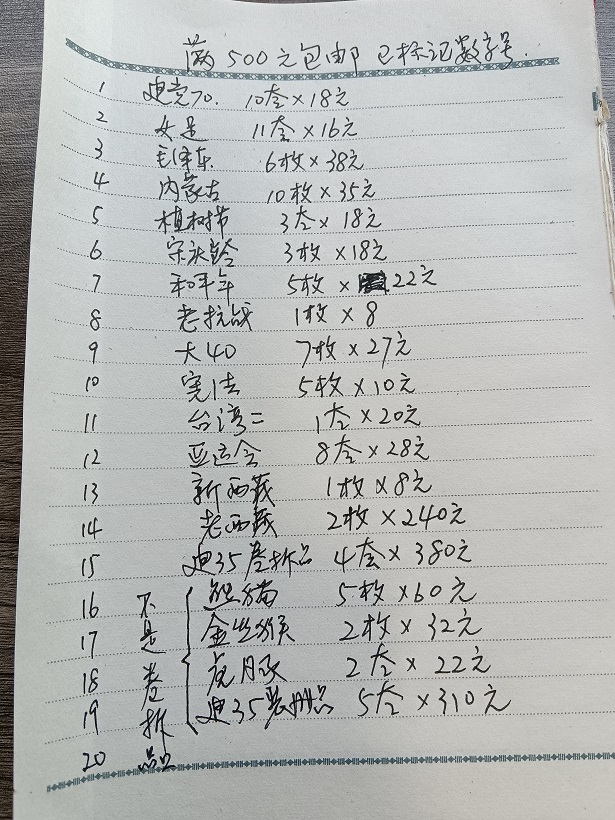 满500元包邮 已标记数字号.
1 建党70. 10套×18元
2 女足 11套×16元
3 毛泽东 6枚×38元
4 内蒙古 10枚×35元
5 植树节 3套×18元
6 宋庆龄 3枚×18元
7 和平年 5枚×22元
8 老抗战 1枚×8
9 大40 7枚×27元
10 宪法 5枚×10元
11 台湾二 1套×20元
12 亚运会 8套×28元
13 新西藏 1枚×8元
14 老西藏 2枚×240元
15 建35卷拆品 4套×380元
16 熊猫 5枚×60元
17 金丝猴 2枚×32元
18 2套×22元
19 建35装册品 5套×310元
20
不是卷拆品